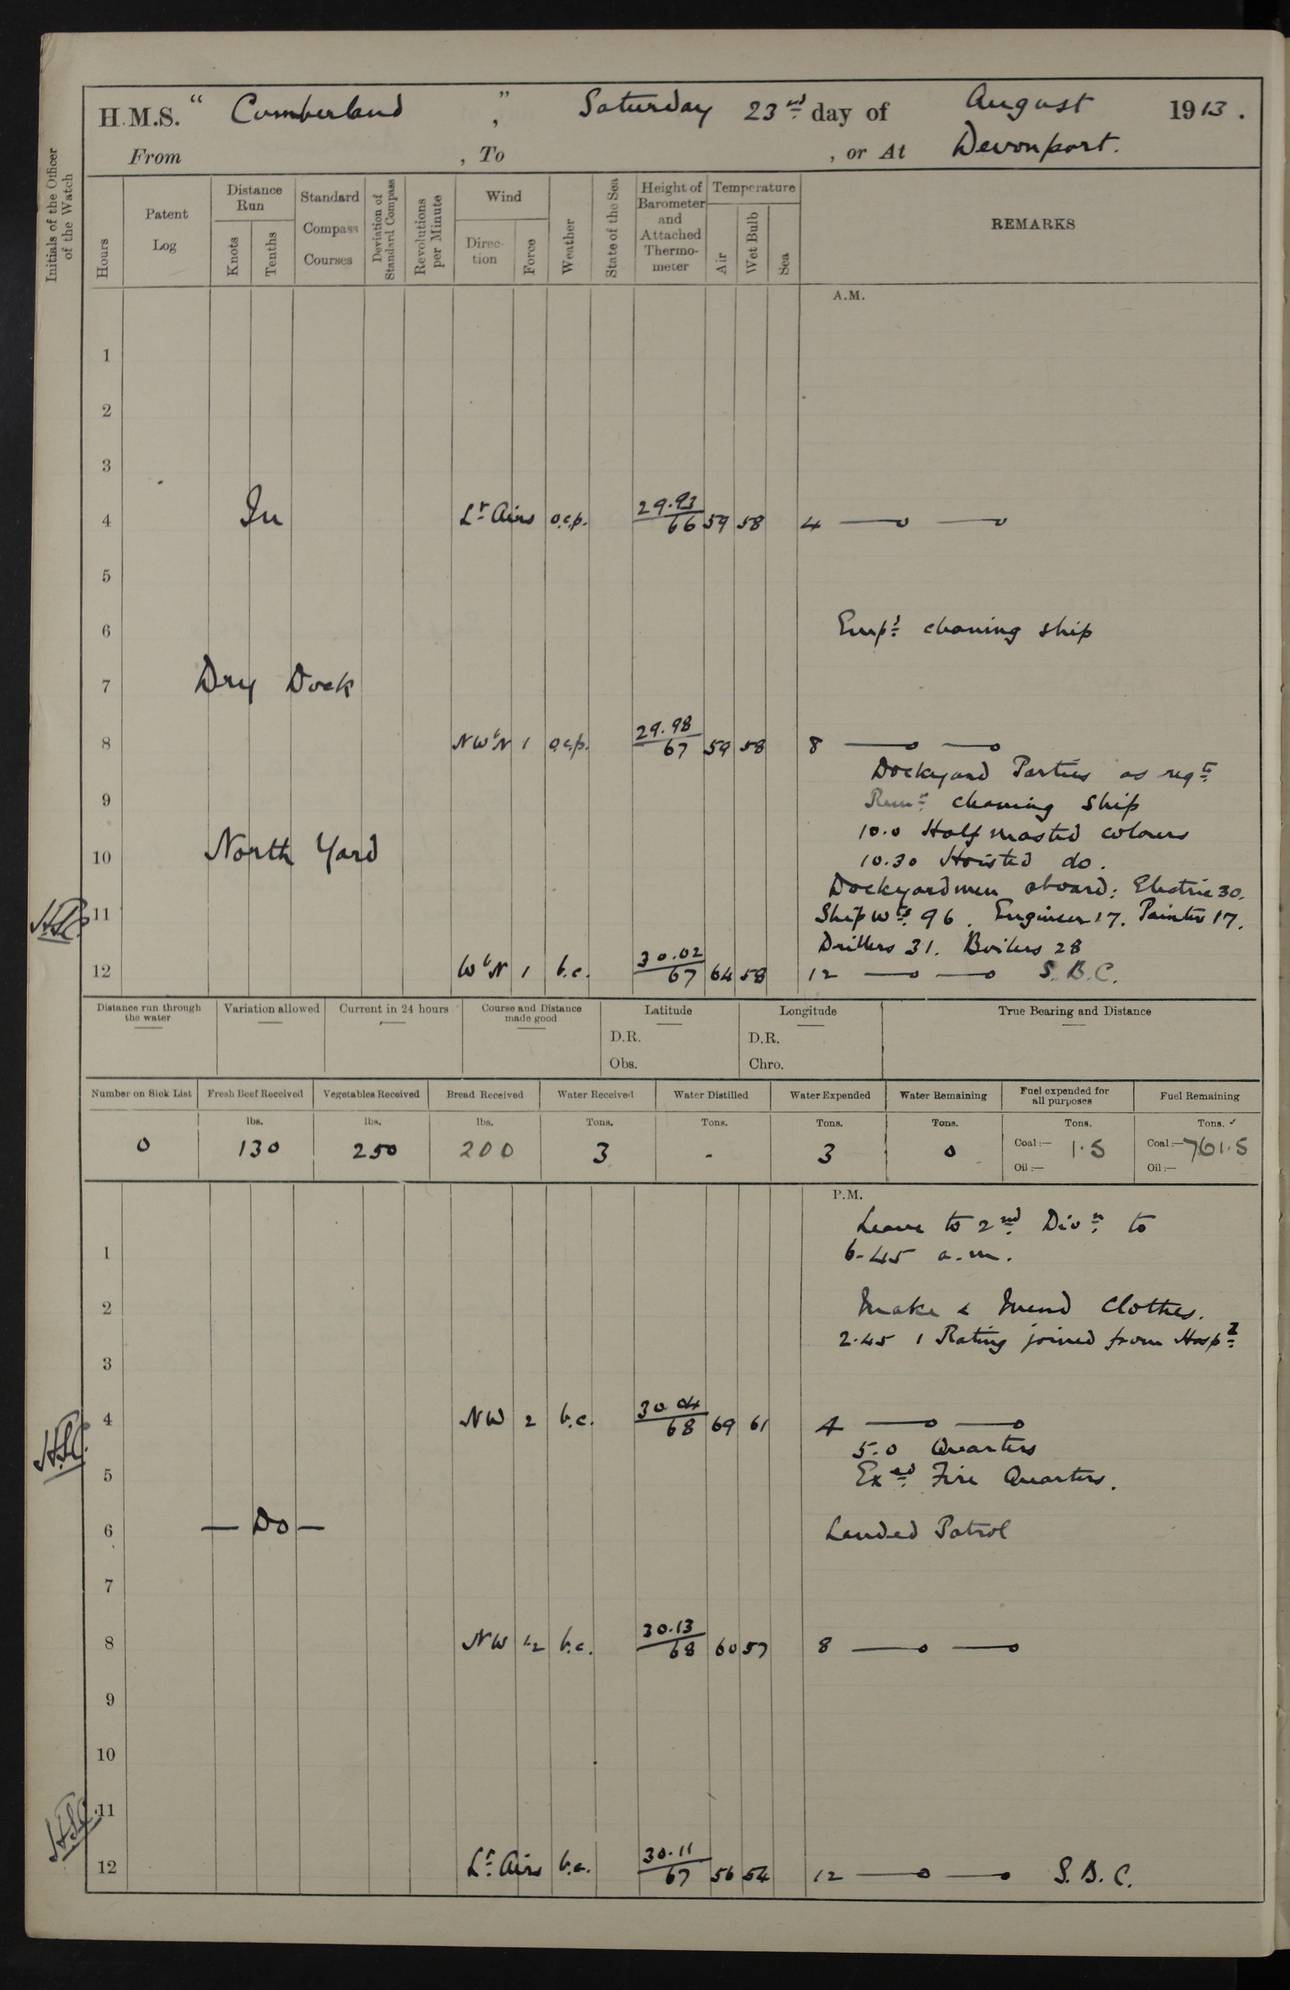 H.M.S. " Cumberland ", Saturday 23rd day of August 1913.
From , To , or At Devonport.
Initials of the Officer of the Watch
Hours
Patent Log
Distance Run
Knots
Tenths
Standard Compass Courses
Deviation of Standard Compass
Revolutions per Minute
Wind
Direction
Force
Weather
State of the Sea
Height of Barometer and Attached Thermometer
Temperature
Air
Wet Bulb
Sea
REMARKS
A.M.
1
2
3
4 In Lt Airs o.c.p. 29.93 66 59 58 4
5
6 Empd cleaning ship
7 Dry Dock
8 NWbN 1 o.c.p. 29.98 67 59 58 8
Dockyard Parties as reqd
9 Remr cleaning Ship
10.0 Half masted colours
10 North Yard 10.30 Hoisted do.
Dockyardmen aboard: Electric 30.
11 Shipwts 96. Engineer 17. Painter 17.
Drillers 31. Boilers 28
12 WbN 1 b.c. 30.02 67 64 58 12 S.B.C.
Distance run through the water
Variation allowed
Current in 24 hours
Course and Distance made good
Latitude
D.R.
Obs.
Longitude
D.R.
Chro.
True Bearing and Distance
Number on Sick List Fresh Beef Received Vegetables Received Bread Received Water Received Water Distilled Water Expended Water Remaining Fuel expended for all purposes Fuel Remaining
lbs. lbs. lbs. Tons. Tons. Tons. Tons. Tons. Tons.
0 130 250 200 3 - 3 0 Coal:— 1.5 Coal:— 761.5
Oil:— Oil:—
P.M.
Leave to 2nd Divn to
1 6-45 a.m.
2 Make & Mend Clothes.
2.45 1 Rating joined from Hospl
3
4 NW 2 b.c. 30.04 68 69 61 4
5.0 Quarters
5 Exed Fire Quarters.
6 — Do — Landed Patrol
7
8 NW 1-2 b.c. 30.13 68 60 57 8
9
10
11
12 Lt Airs b.c. 30.11 67 56 54 12 S.B.C.